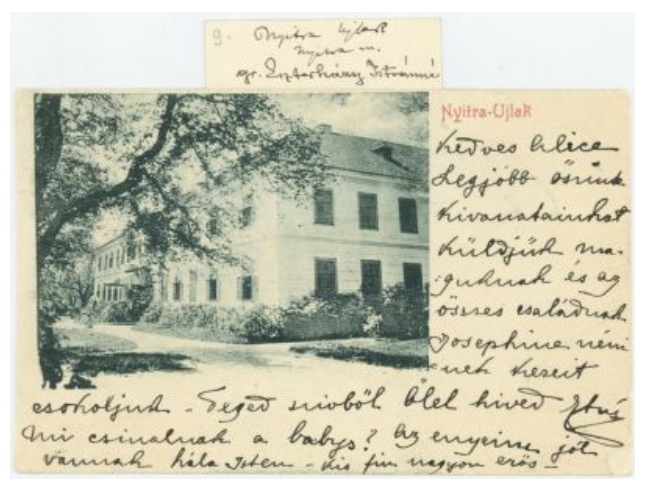 9. Nyitra Ujlak
Nyitra m.
gr. Eszterházy Istvánné
Nyitra-Ujlak
Kedves Alice
Legjobb
kivanatainkat
küldjük ma-
guknak és az
összes családnak
Josephine néni
nek kezeit
csokoljuk - Téged szivböl ölel hived
Mi csinalnak a babys? Az enyeim jól
vannak hála Isten - kis fiu nagyon erös -